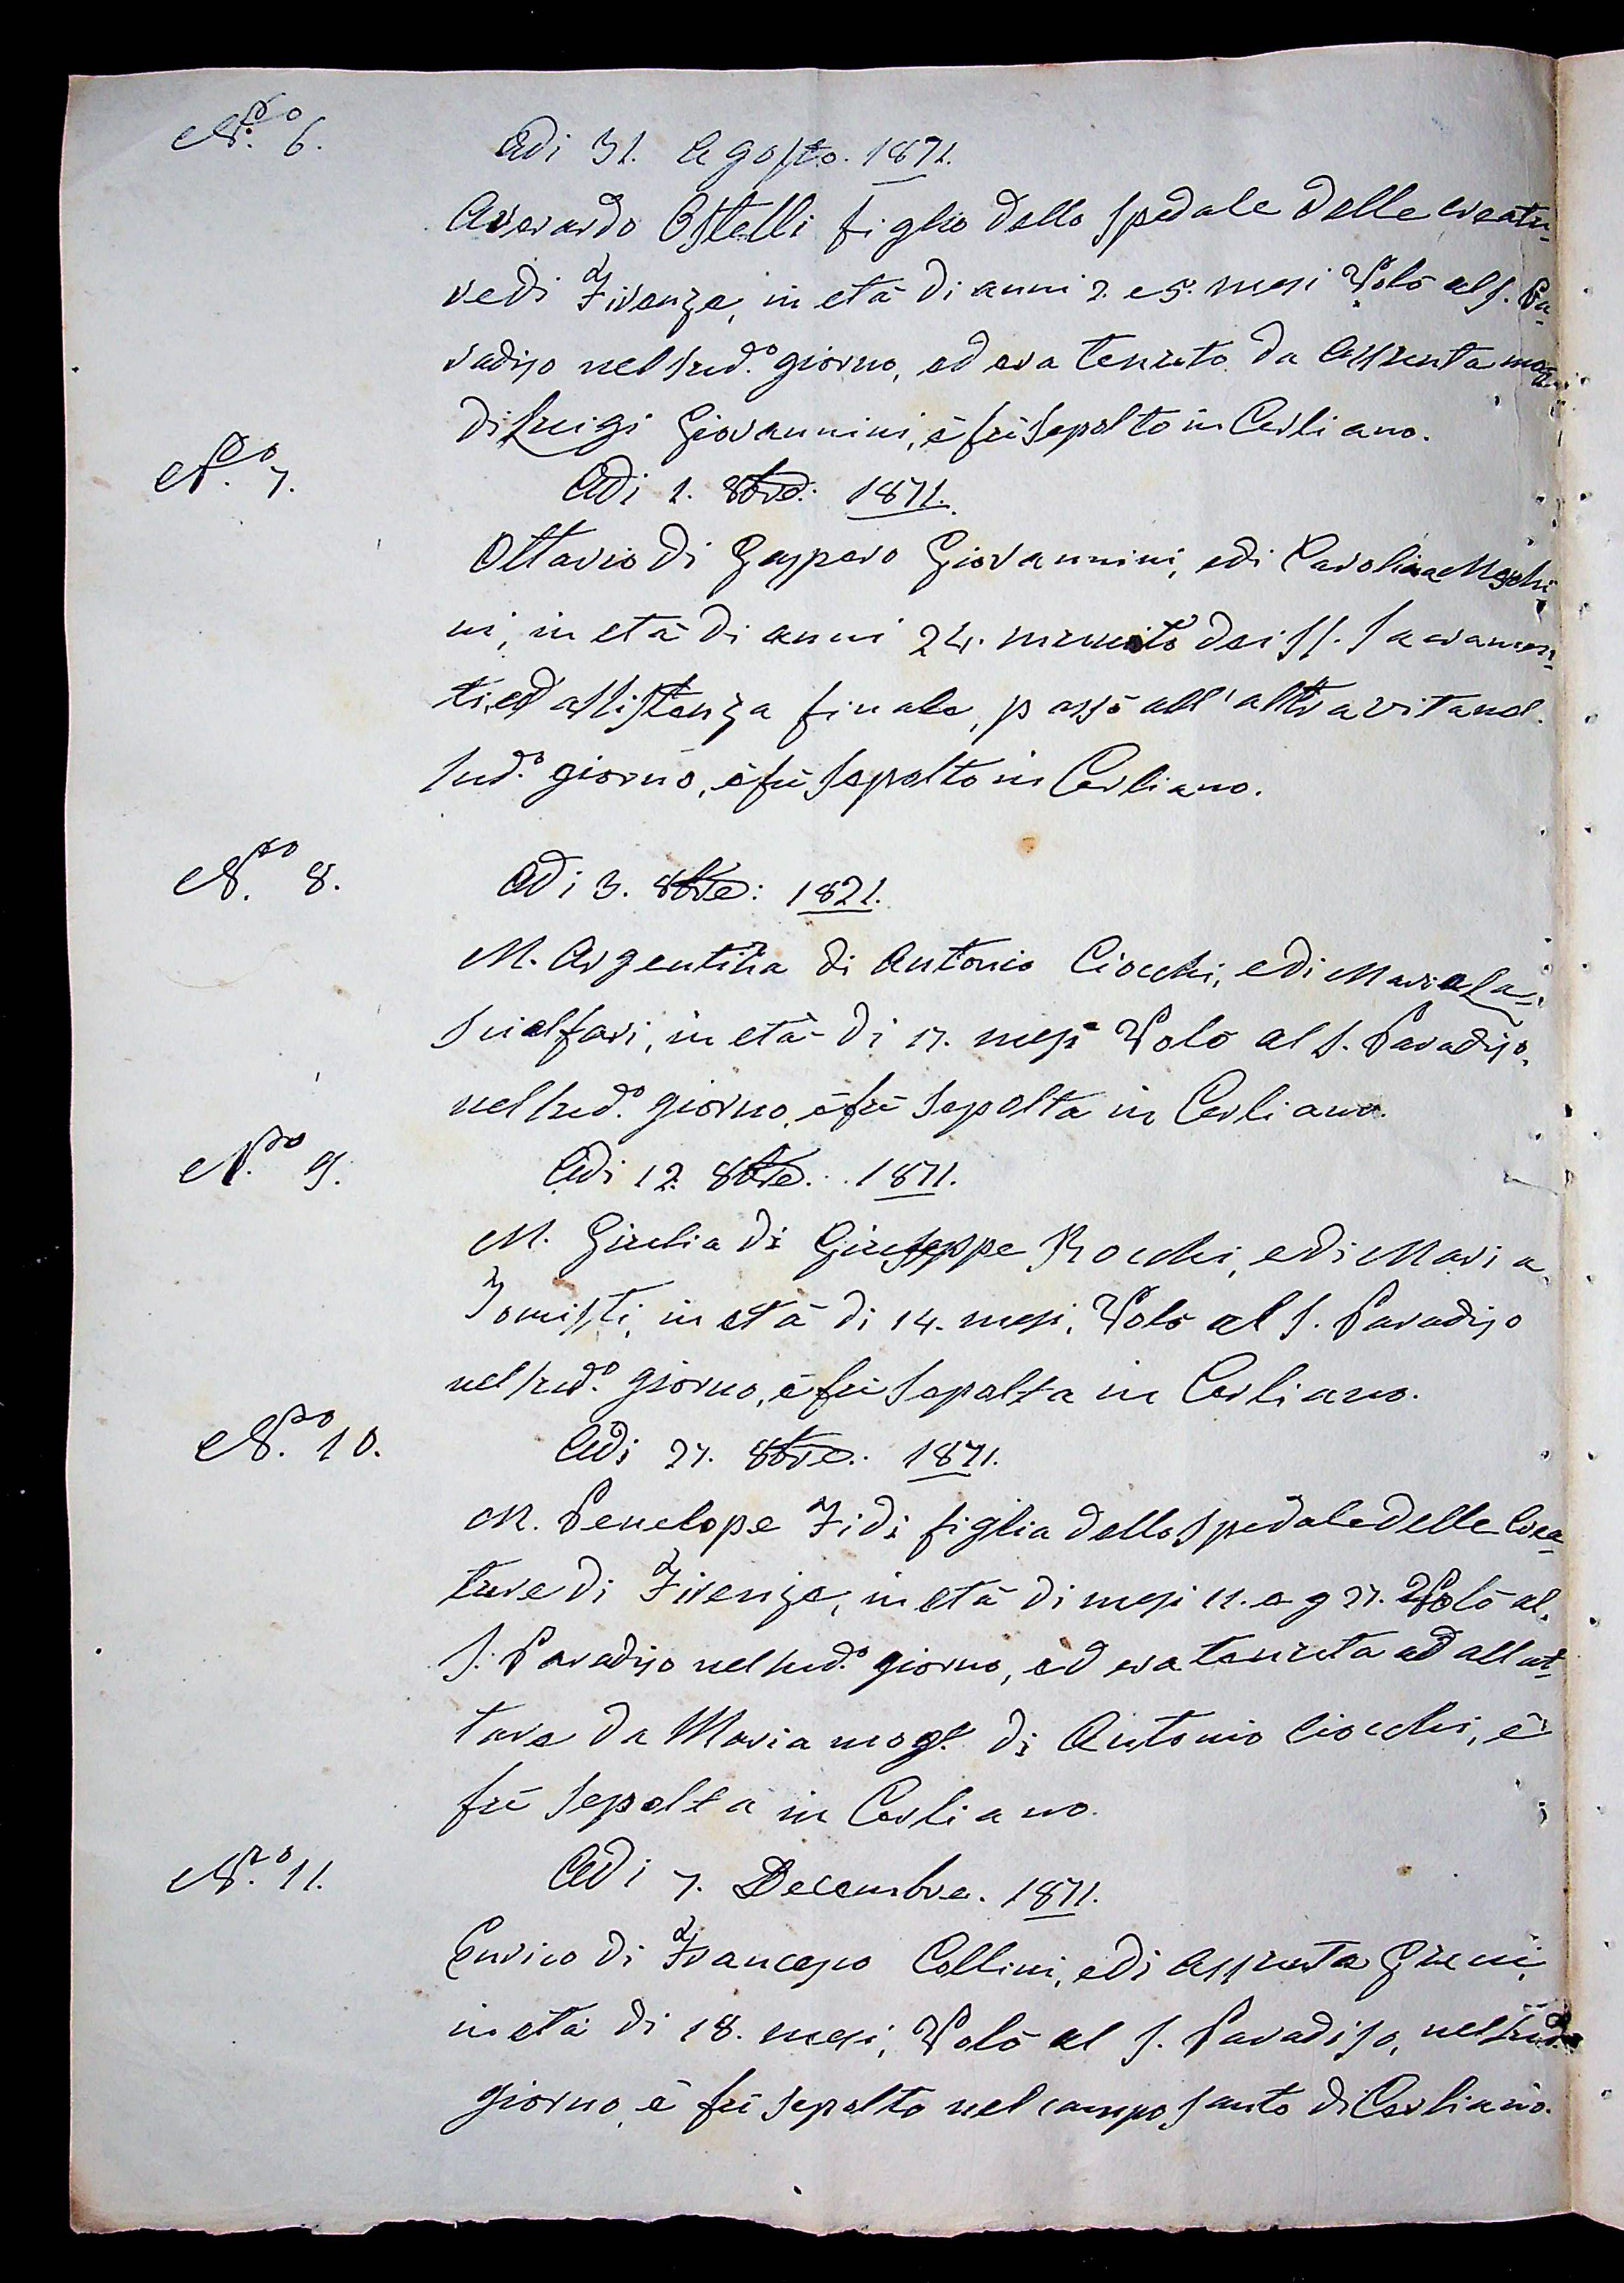 N.ro 6.
Adi 31. Agosto. 1871.
Averardo Ostelli figlio dello Spedale delle creatu-
re di Firenze, in età di anni 2. e 5. mesi Volò al S. Pa-
radiso nel sud.o giorno, ed era tenuto da Assunta mog.
di Luigi Giovannini, è fù sepolto in Cerliano.
N.ro 7.
Adi 1. 8bre: 1871.
Ottavio di Gasparo Giovannini, e di Carolina Meschi-
ni, in età di anni 24. munito dei SS. Sacramen-
ti, ed assistenza finale, passò all'altra vita nel
sud.o giorno, è fù sepolto in Cerliano.
N.ro 8.
Adi 3. 8bre: 1871.
M. Argentina di Antonio Ciocchi, e di Maria La-
scialfari, in età di 17. mesi Volò al S. Paradiso,
nel sud.o giorno, è fù sepolta in Cerliano.
N.ro 9.
Adi 12. 8bre. 1871.
M. Giulia di Giuseppe Rocchi, e di Maria
Tomisti, in età di 14. mesi, Volò al S. Paradiso
nel sud.o giorno, è fù sepolta in Cerliano.
N.ro 10.
Adi 27. 8bre. 1871.
M. Penelope Fidi figlia dello Spedale delle Crea-
ture di Firenze, in età di mesi 11. e g 27. Volò al
S. Paradiso nel sud.o giorno, ed era tenuta ad allat-
tare da Maria mogl. di Antonio Ciocchi, è
fù sepolta in Cerliano.
N.ro 11.
Adi 7. Decembre. 1871.
Enrico di Francesco Collini, e di Assunta
in età di 18. mesi, Volò al S. Paradiso, nel sud.o
giorno, è fù sepolto nel campo santo di Cerliano.